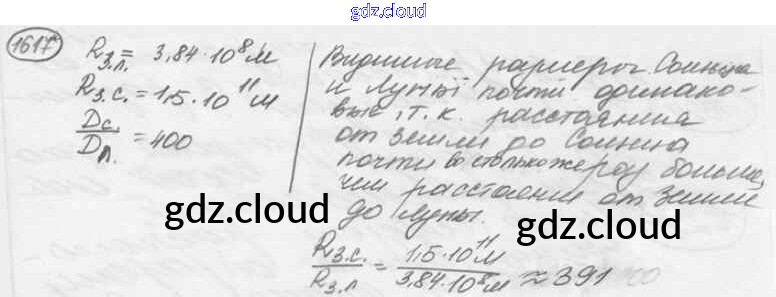 gdz.cloud
1617
R з.л. = 3,84 · 10⁸ м
R з.с. = 1,5 · 10¹¹ м
Dс. / Dл. = 400
Видимые размеры Солнца
и Луны почти одинако-
вые, т. к. расстояния
от Земли до Солнца
почти во столько же раз больше,
чем расстояния от Земли
до Луны.
gdz.cloud
gdz.cloud
R з.с. / R з.л = 1,5 · 10¹¹ м / 3,84 · 10⁸ м ≈ 391